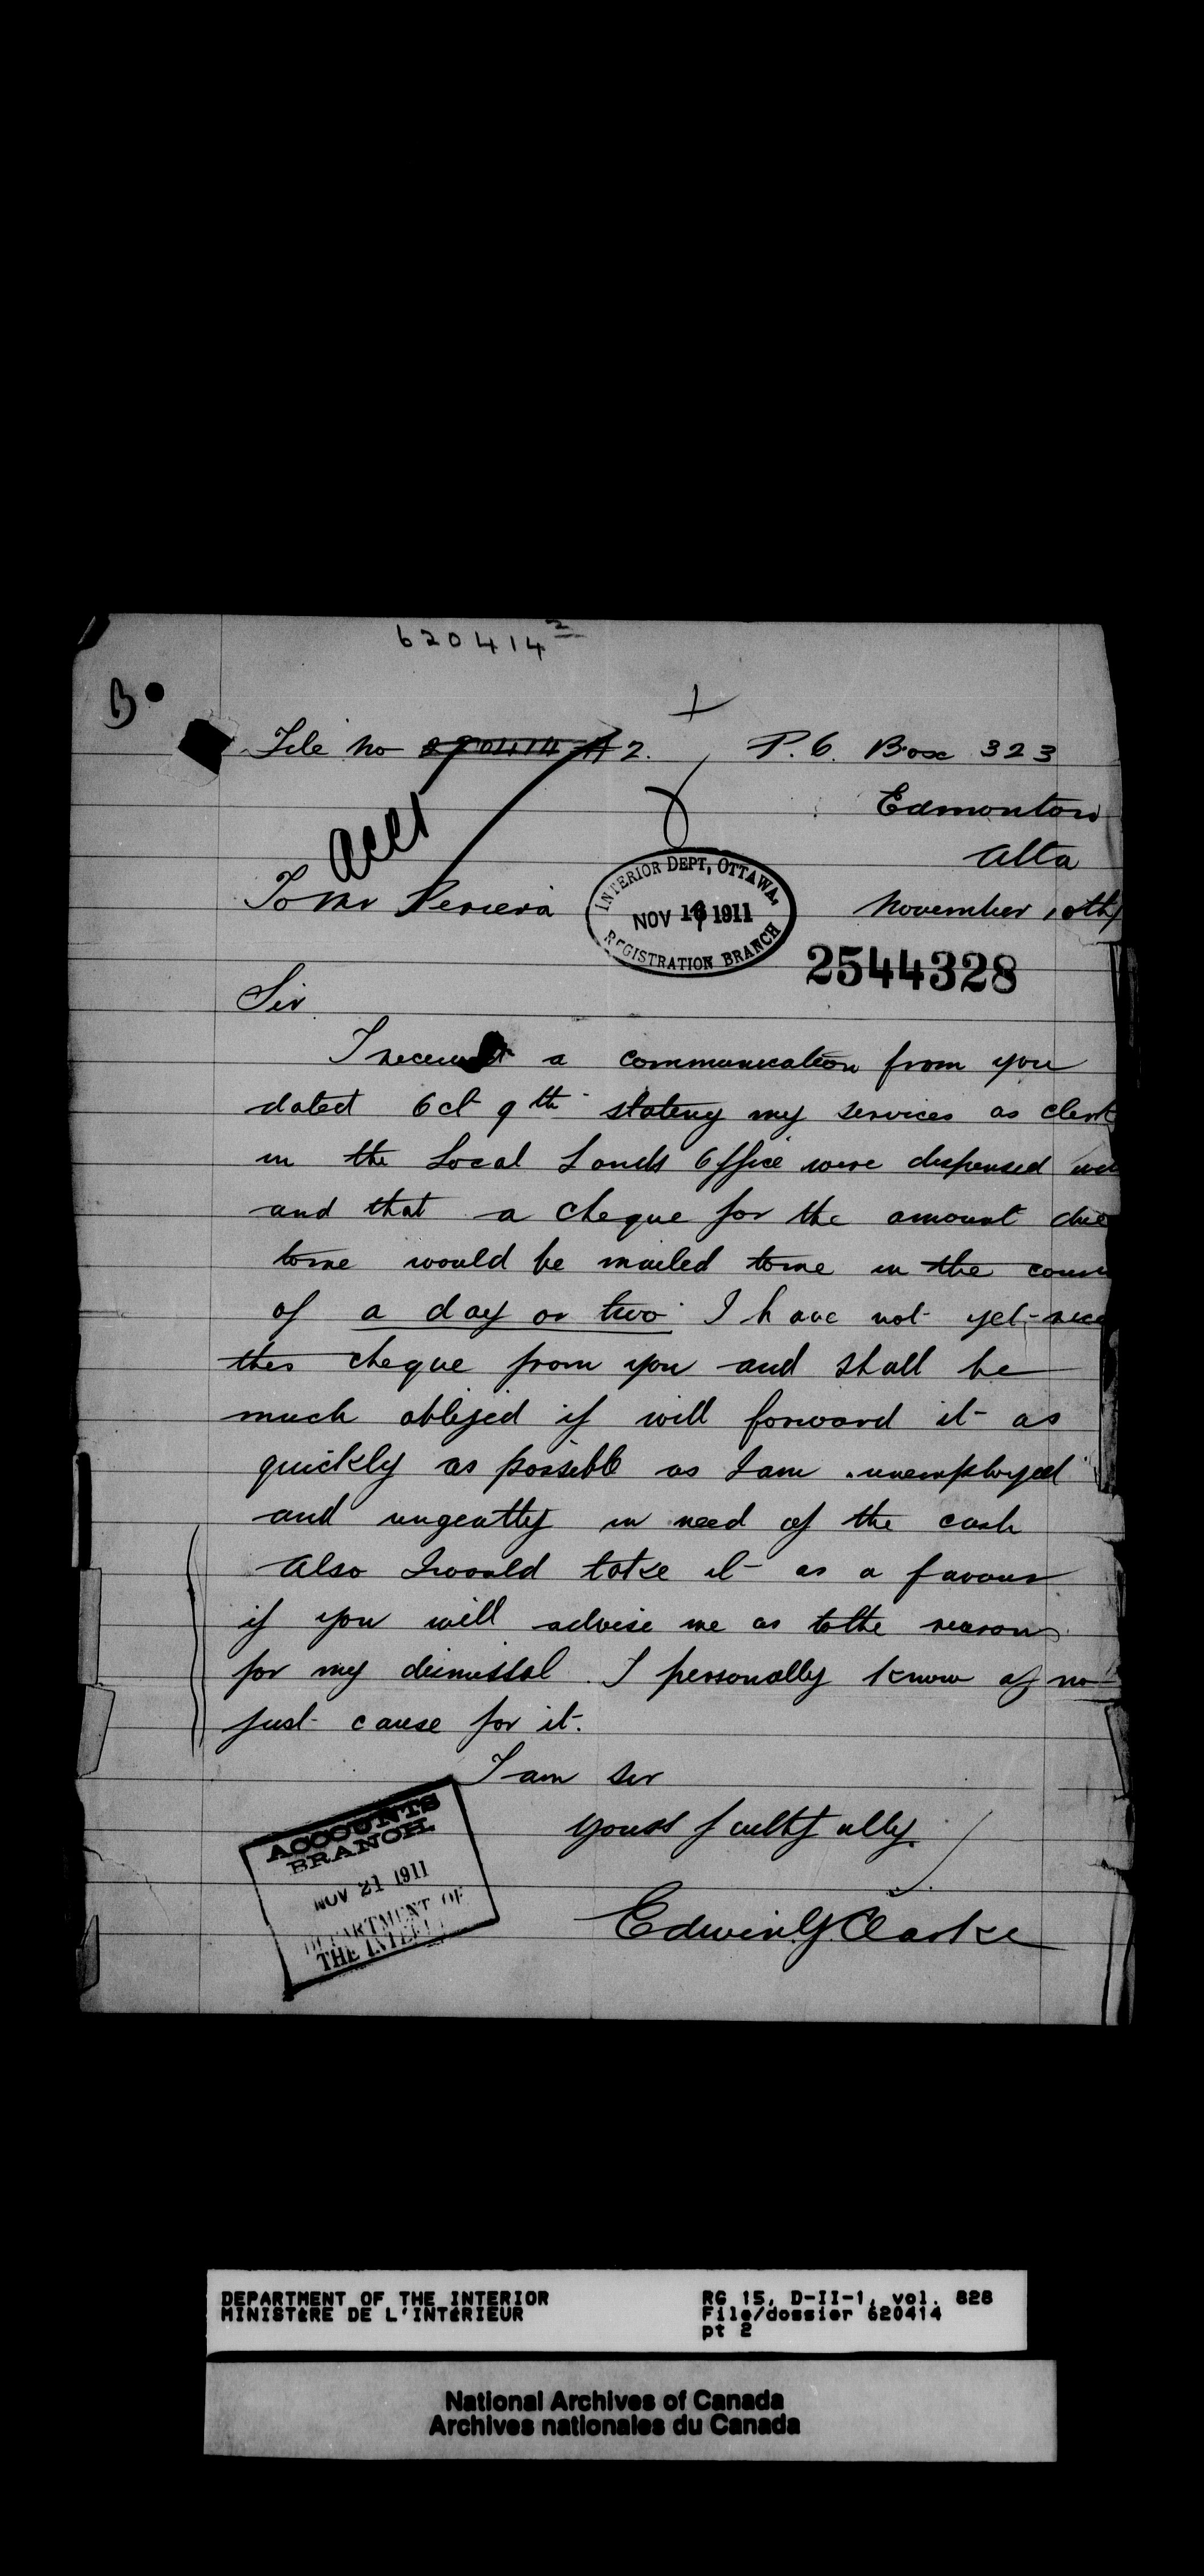 620414 2
B
File No 870414 A 2. P.O. Box 323
Edmonton
Alta
acct
To Mr Pereira
November 10th
INTERIOR DEPT, OTTAWA.
NOV 1 1911
REGISTRATION BRANCH
2544328
Sir
I received a communication from you
dated Oct 9th stating my services as clerk
in the Local Lands Office were dispensed
and that a cheque for the amount due
to me would be mailed to me in the cours
of a day or two I have not yet rece
this cheque from you and shall be
much obliged if will forward it as
quickly as possible as I am unemployed
and urgently in need of the cash
Also I would take it as a favour
if you will advise me as to the reason
for my dismissal. I personally know of no
just cause for it.
I am Sir
yours faithfully.
Edwin G Clarke
ACCOUNTS
BRANCH.
NOV 21 1911
DEPARTMENT OF
THE INTE
DEPARTMENT OF THE INTERIOR RG 15, D-II-1, vol. 828
MINISTÈRE DE L'INTÉRIEUR File/dossier 620414
pt 2
National Archives of Canada
Archives nationales du Canada